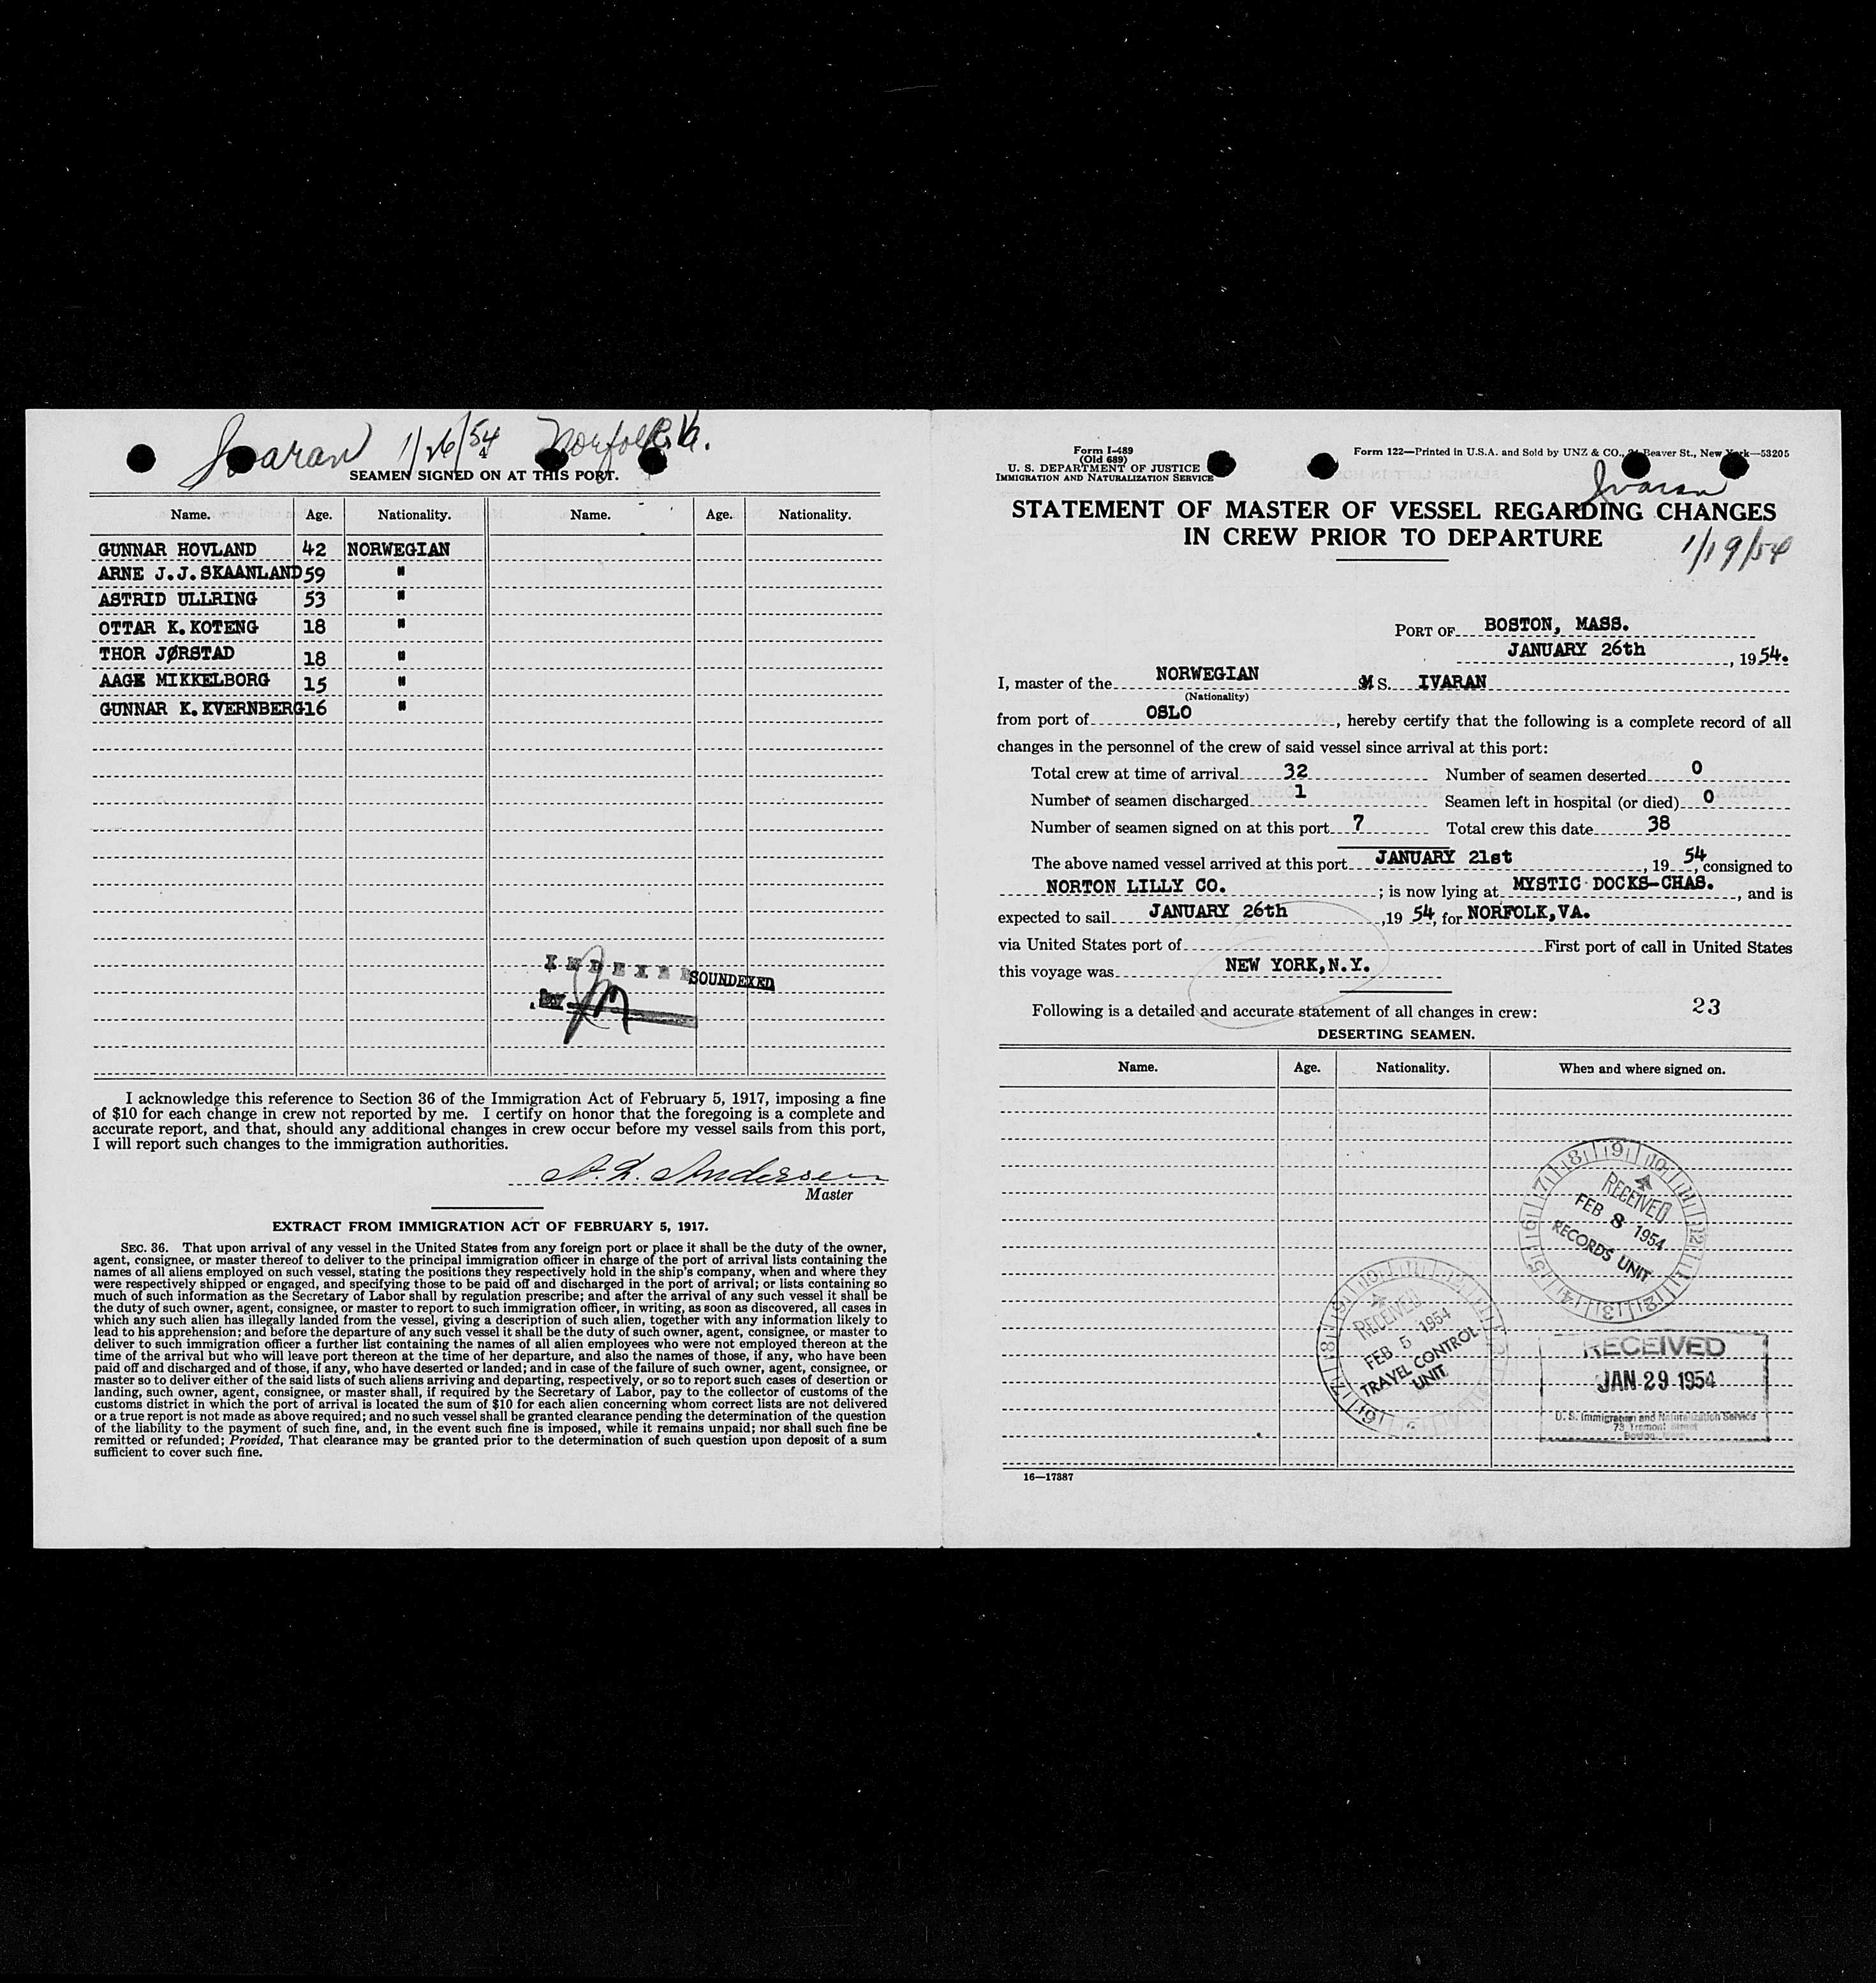 Ivaran 1/26/54 Norfolk, Va.
4
SEAMEN SIGNED ON AT THIS PORT.
Name. Age. Nationality. Name. Age. Nationality.
GUNNAR HOVLAND 42 NORWEGIAN
ARNE J.J.SKAANLAND 59 "
ASTRID ULLRING 53 "
OTTAR K. KOTENG 18 "
THOR JØRSTAD 18 "
AAGE MIKKELBORG 15 "
GUNNAR K. KVERNBERG 16 "
INDEXED SOUNDEXED
BY
I acknowledge this reference to Section 36 of the Immigration Act of February 5, 1917, imposing a fine
of $10 for each change in crew not reported by me. I certify on honor that the foregoing is a complete and
accurate report, and that, should any additional changes in crew occur before my vessel sails from this port,
I will report such changes to the immigration authorities.
A. L. Andersen
Master
EXTRACT FROM IMMIGRATION ACT OF FEBRUARY 5, 1917.
SEC. 36. That upon arrival of any vessel in the United States from any foreign port or place it shall be the duty of the owner,
agent, consignee, or master thereof to deliver to the principal immigration officer in charge of the port of arrival lists containing the
names of all aliens employed on such vessel, stating the positions they respectively hold in the ship's company, when and where they
were respectively shipped or engaged, and specifying those to be paid off and discharged in the port of arrival; or lists containing so
much of such information as the Secretary of Labor shall by regulation prescribe; and after the arrival of any such vessel it shall be
the duty of such owner, agent, consignee, or master to report to such immigration officer, in writing, as soon as discovered, all cases in
which any such alien has illegally landed from the vessel, giving a description of such alien, together with any information likely to
lead to his apprehension; and before the departure of any such vessel it shall be the duty of such owner, agent, consignee, or master to
deliver to such immigration officer a further list containing the names of all alien employees who were not employed thereon at the
time of the arrival but who will leave port thereon at the time of her departure, and also the names of those, if any, who have been
paid off and discharged and of those, if any, who have deserted or landed; and in case of the failure of such owner, agent, consignee, or
master so to deliver either of the said lists of such aliens arriving and departing, respectively, or so to report such cases of desertion or
landing, such owner, agent, consignee, or master shall, if required by the Secretary of Labor, pay to the collector of customs of the
customs district in which the port of arrival is located the sum of $10 for each alien concerning whom correct lists are not delivered
or a true report is not made as above required; and no such vessel shall be granted clearance pending the determination of the question
of the liability to the payment of such fine, and, in the event such fine is imposed, while it remains unpaid; nor shall such fine be
remitted or refunded; Provided, That clearance may be granted prior to the determination of such question upon deposit of a sum
sufficient to cover such fine.
Form I-489
(Old 689)
U. S. DEPARTMENT OF JUSTICE
IMMIGRATION AND NATURALIZATION SERVICE
Form 122—Printed in U.S.A. and Sold by UNZ & CO., Beaver St., New York—53205
Ivaran
STATEMENT OF MASTER OF VESSEL REGARDING CHANGES
IN CREW PRIOR TO DEPARTURE
1/19/54
PORT OF BOSTON, MASS.
JANUARY 26th, 1954.
I, master of the NORWEGIAN MS. IVARAN
(Nationality)
from port of OSLO, hereby certify that the following is a complete record of all
changes in the personnel of the crew of said vessel since arrival at this port:
Total crew at time of arrival 32 Number of seamen deserted 0
Number of seamen discharged 1 Seamen left in hospital (or died) 0
Number of seamen signed on at this port 7 Total crew this date 38
The above named vessel arrived at this port JANUARY 21st, 19 54, consigned to
NORTON LILLY CO.; is now lying at MYSTIC DOCKS-CHAS., and is
expected to sail JANUARY 26th, 19 54, for NORFOLK, VA.
via United States port of First port of call in United States
this voyage was NEW YORK, N.Y.
Following is a detailed and accurate statement of all changes in crew: 23
DESERTING SEAMEN.
Name. Age. Nationality. When and where signed on.
RECEIVED
FEB 8 1954
RECORDS UNIT
RECEIVED
FEB 5 1954
TRAVEL CONTROL
UNIT
RECEIVED
JAN 29 1954
U. S. Immigration and Naturalization Service
73 Tremont Street
Boston, Mass.
16—17387